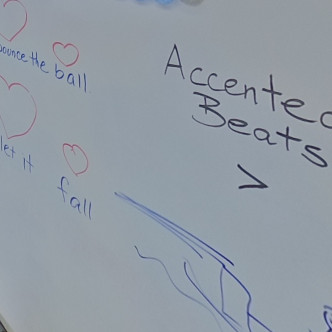 bounce the ball
let it fall
Accented
Beats
>